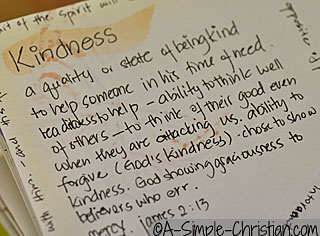 it of the Spirit will
Kindness
a quality or state of being kind
to help someone in his time of need.
readiness to help - ability to think well
of others - to think of their good even
when they are attacking us. ability to
forgive (God's kindness). chose to show
kindness. God showing graciousness to
believers who err.
mercy. james 2:13
©A-Simple-Christian.com